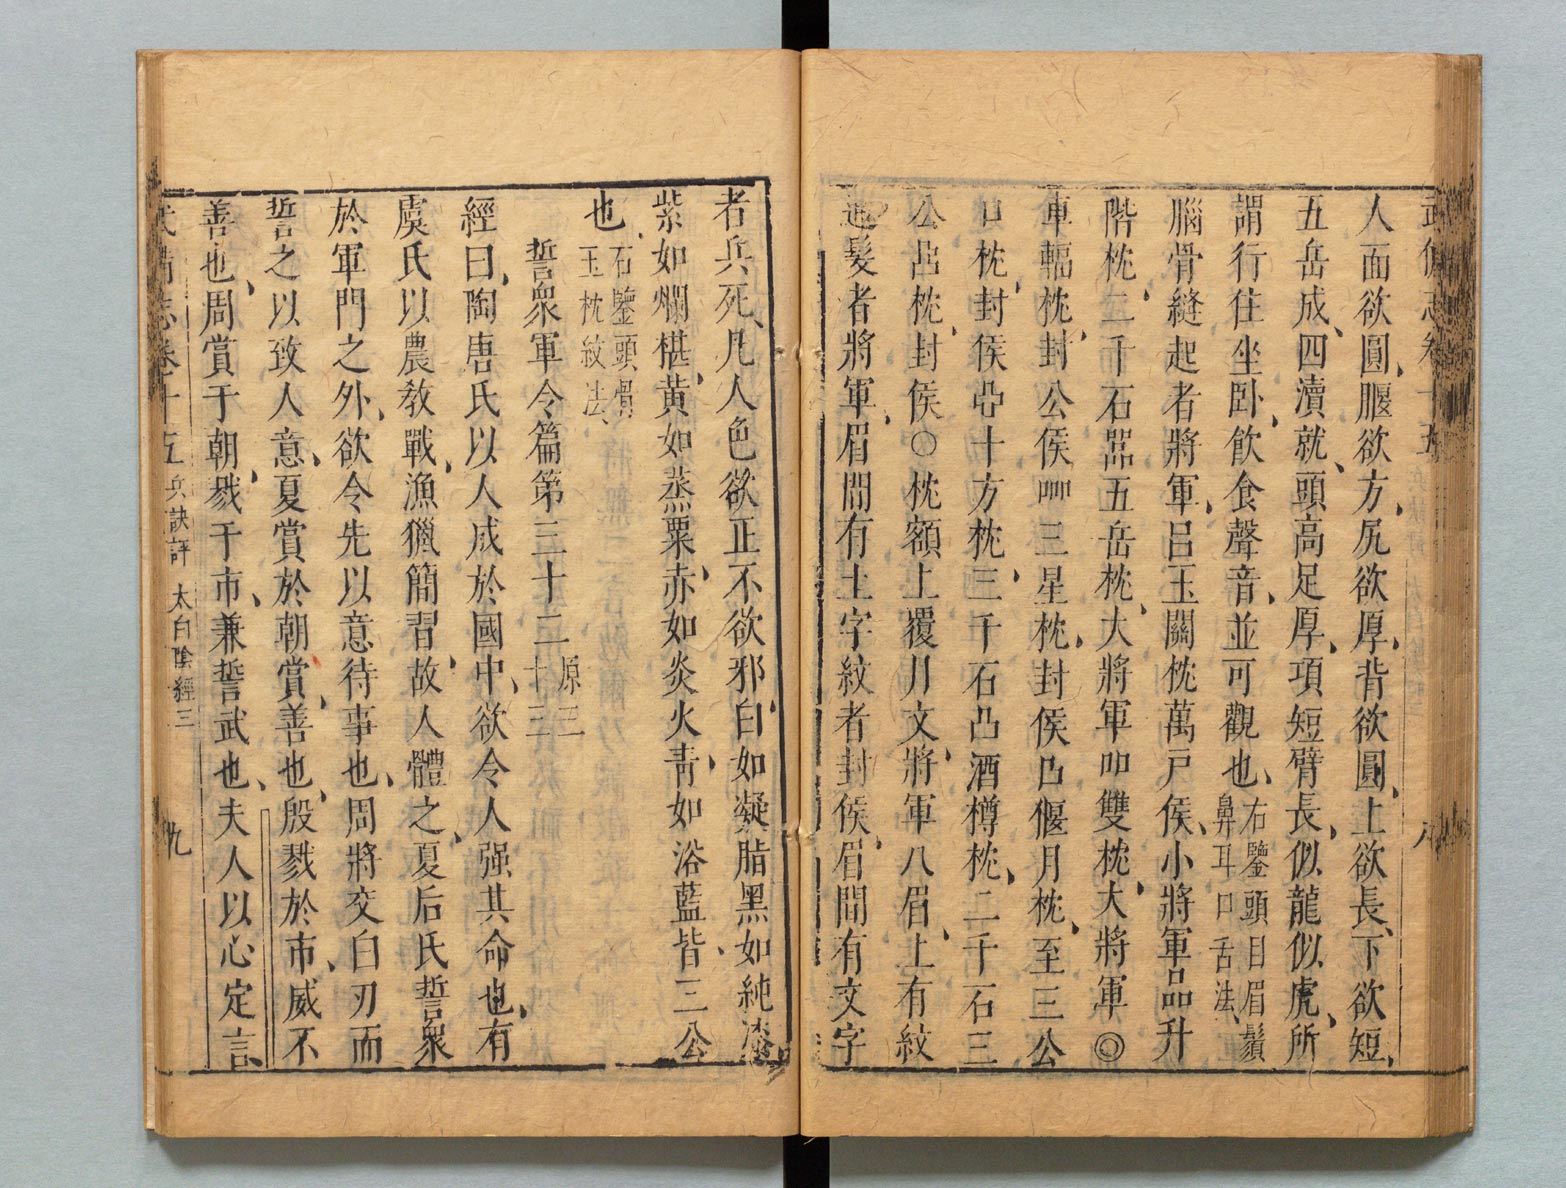 武備志卷十五
八
人面欲圓、腰欲方、尻欲厚、背欲圓、上欲長、下欲短、
五岳成、四瀆就、頭高足厚、項短臂長、似龍似虎、所
謂行住坐卧、飲食聲音、並可觀也、右鑒頭目眉鬚鼻耳口舌法、
腦骨縫起者將軍、吕玉關枕萬戸侯、小將軍品升
階枕、二千石㗊五岳枕、大將軍吅雙枕、大將軍◎
車輻枕、封公侯吅三星枕、封侯凸偃月枕、至三公
口枕、封侯㐁十方枕、三千石凸酒樽枕、二千石三
公㠯枕、封侯○枕額上覆月文、將軍八眉、上有紋
通髮者將軍、眉間有土字紋者封侯、眉間有文字
者兵死、凡人色欲正不欲邪、白如凝脂黑如純漆
紫如爛椹、黄如蒸粟、赤如炎火青如浴藍、皆三公
也、右鑒頭骨玉枕紋法、
誓衆軍令篇第三十二原三十三
經曰、陶唐氏以人戒於國中、欲令人强其命也、有
虞氏以農教戰、漁獵簡習、故人體之、夏后氏誓衆
於軍門之外、欲令先以意待事也、周將交白刃而
誓之以致人意、夏賞於朝、賞善也、殷戮於市、威不
善也、周賞于朝、戮于市、兼誓武也、夫人以心定言、
武備志卷十五 兵訣評 太白陰經三
九